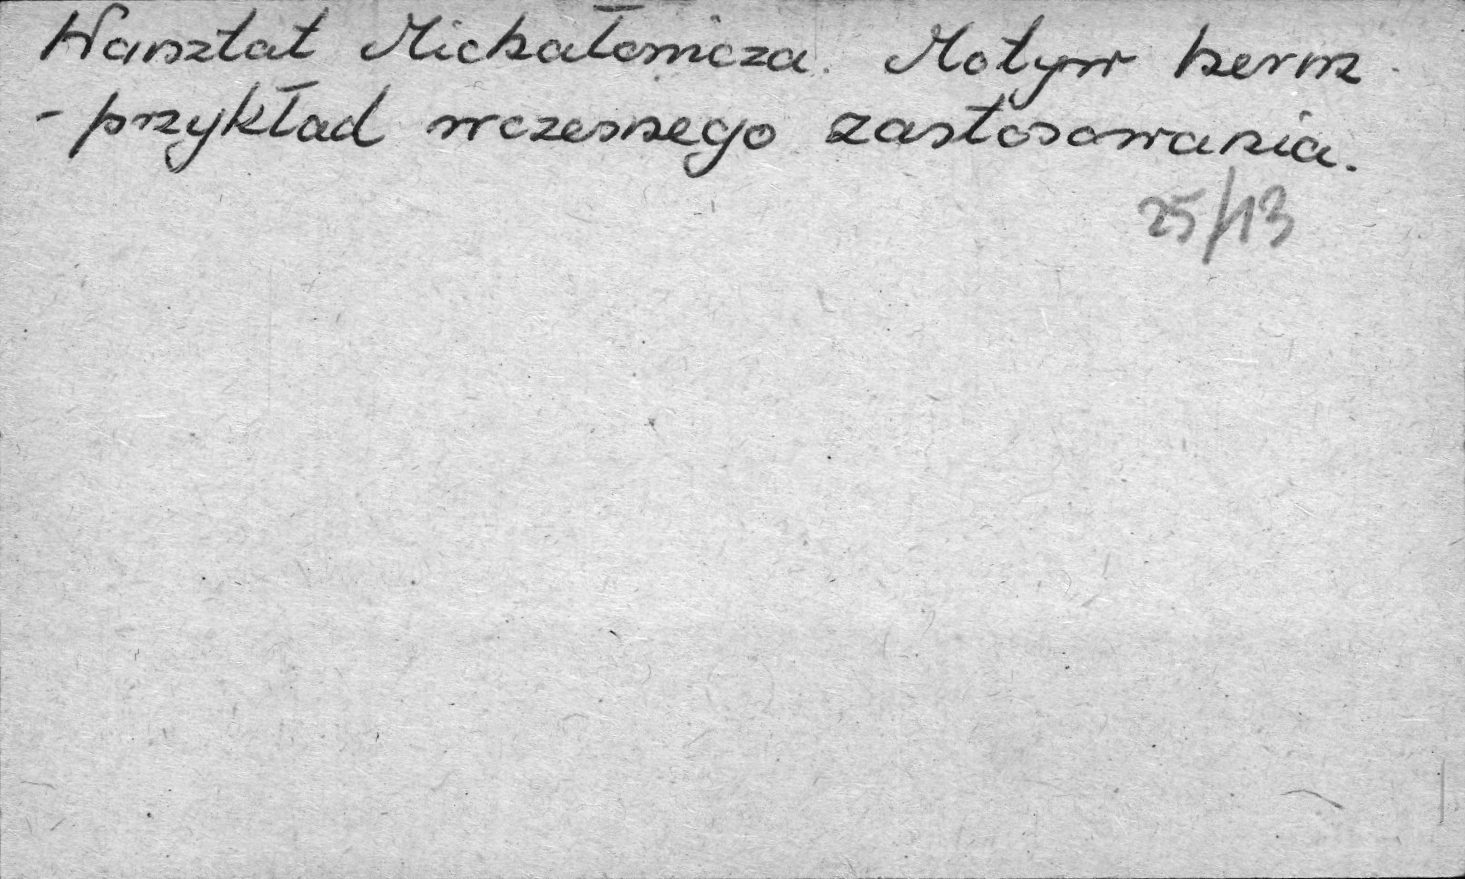 Warsztat Michałowicza. Motyw herm
- przykład wczesnego zastosowania.
25/13